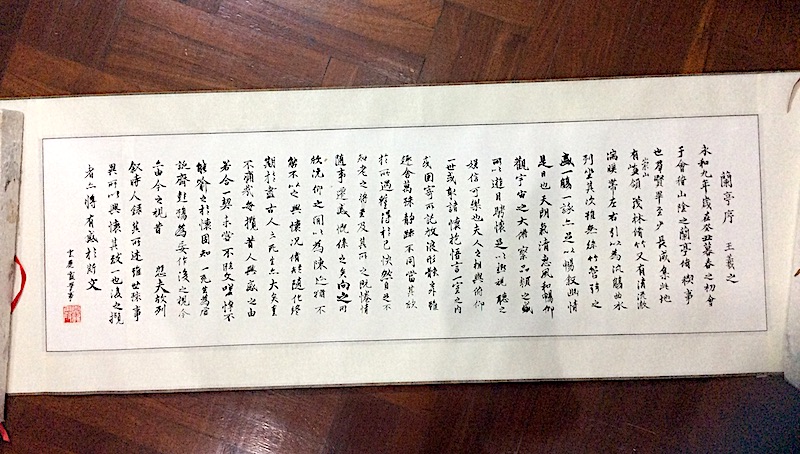 蘭亭序 王羲之
永和九年歲在癸丑暮春之初會
于會稽山陰之蘭亭脩禊事
也群賢畢至少長咸集此地
有崇山峻領茂林脩竹又有清流激
湍暎帶左右引以為流觴曲水
列坐其次雖無絲竹管弦之
盛一觴一詠亦足以暢敘幽情
是日也天朗氣清惠風和暢仰
觀宇宙之大俯察品類之盛
所以遊目騁懷足以極視聽之
娛信可樂也夫人之相與俯仰
一世或取諸懷抱悟言一室之內
或因寄所託放浪形骸之外雖
趣舍萬殊靜躁不同當其欣
於所遇暫得於己快然自足不
知老之將至及其所之既惓情
隨事遷感慨係之矣向之所
欣俛仰之間以為陳迹猶不
能不以之興懷況脩短隨化終
期於盡古人云死生亦大矣豈
不痛哉每攬昔人興感之由
若合一契未嘗不臨文嗟悼不
能喻之於懷固知一死生為虛
誕齊彭殤為妄作後之視今
亦由今之視昔 悲夫故列
敘時人錄其所述雖世殊事
異所以興懷其致一也後之攬
者亦將有感於斯文